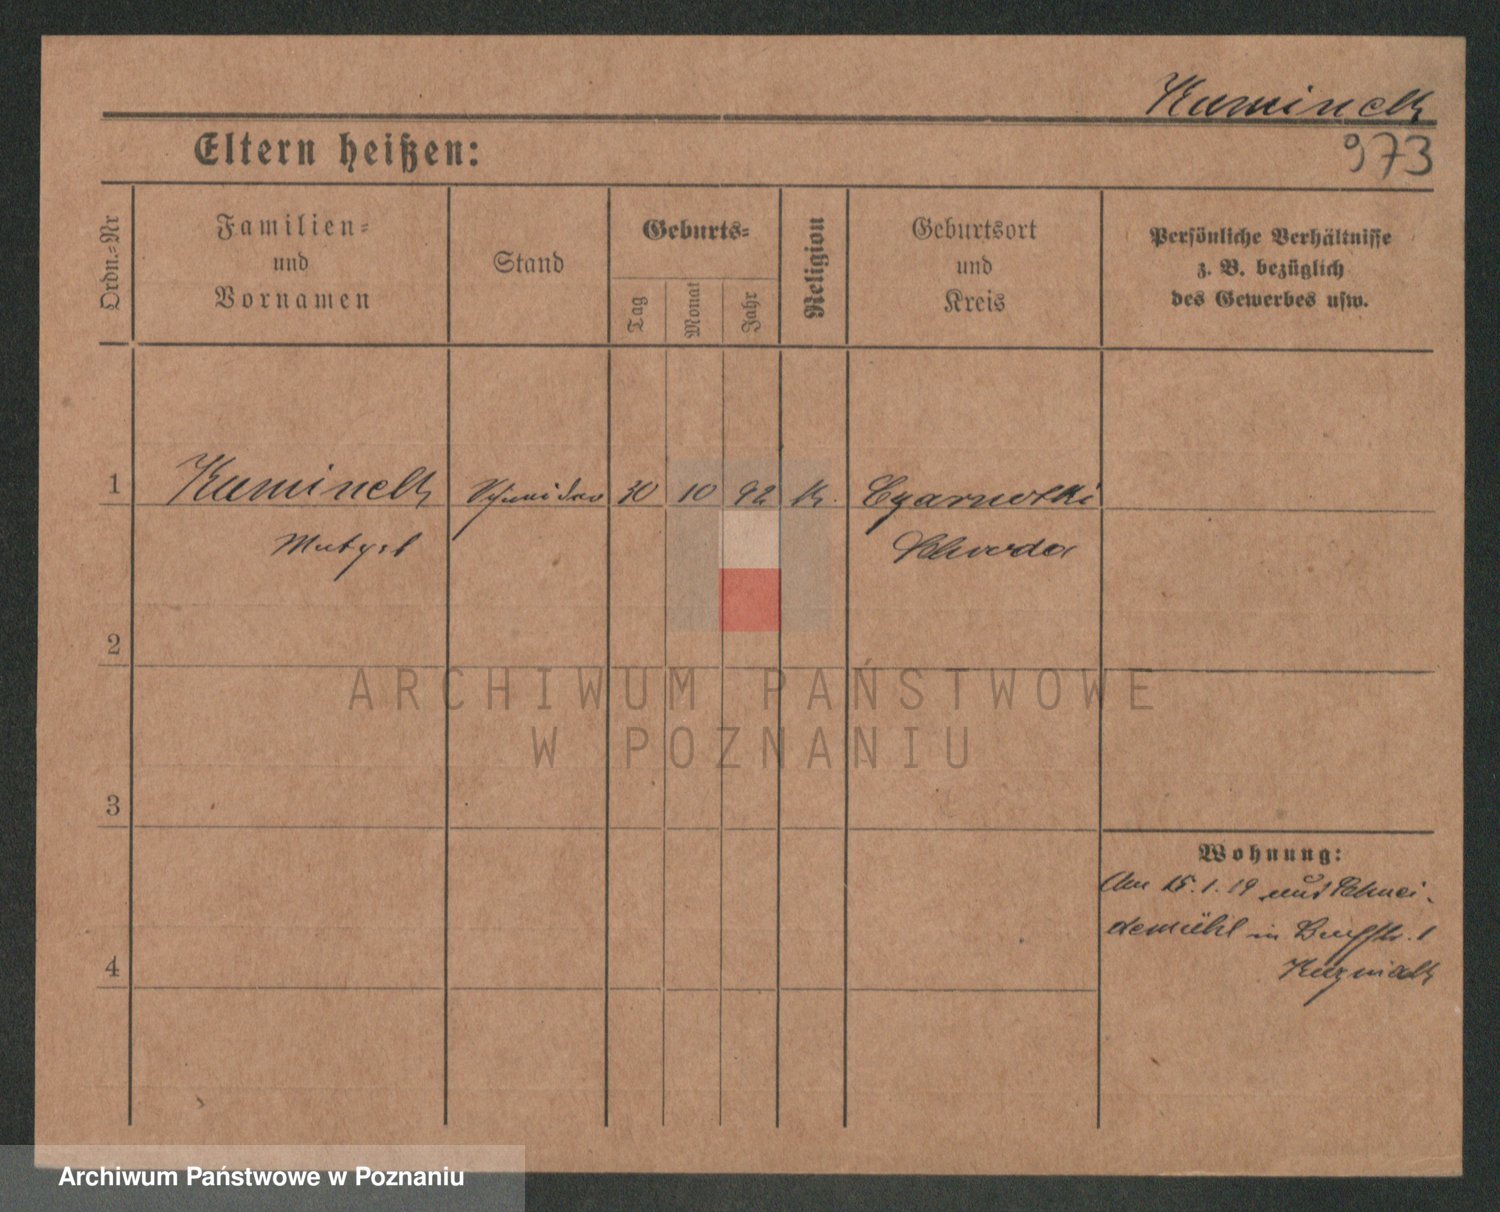 Kaminek
973
Eltern heißen:
Ordn.-Nr
Familien-
und
Vornamen
Stand
Geburts-
Tag
Monat
Jahr
Religion
Geburtsort
und
Kreis
Persönliche Verhältnisse
z. B. bezüglich
des Gewerbes usw.
1
Kaminek Schneider 30 10 92 k. Czarnotki
Schroda
2
ARCHIWUM PAŃSTWOWE
W POZNANIU
3
Wohnung:
Am 15.1.19 aus Schnei-
demühl in 1
4
Archiwum Państwowe w Poznaniu